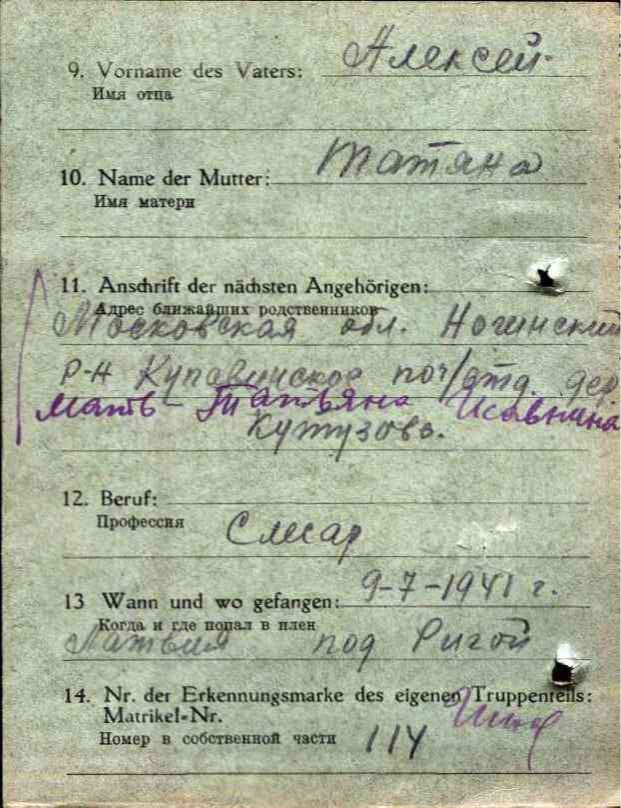 Алексей
9. Vorname des Vaters:
Имя отца
Татяна
10. Name der Mutter:
Имя матери
11. Anschrift der nächsten Angehörigen:
Адрес ближайших родственников
Московская обл. Ногинский
р-н Купавинское поч/отд. дер.
Мать Татьяна
Кутузово.
12. Beruf:
Профессия
Слесар
9-7-1941 г.
13 Wann und wo gefangen:
Когда и где попал в плен
Латвия под Ригой
14. Nr. der Erkennungsmarke des eigenen Truppenteils:
Matrikel-Nr.
Номер в собственной части 114